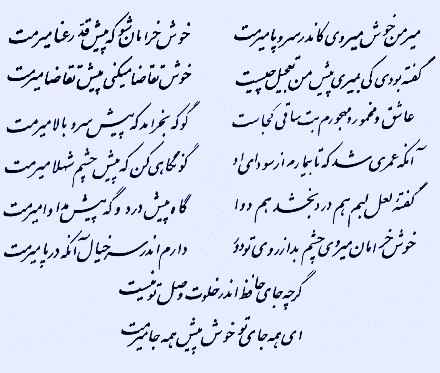 میر من خوش میروی کاندر سر و پا میرمت خوش خرامان شو که پیش قد رعنا میرمت
گفته بودی کی بمیری پیش من تعجیل چیست خوش تقاضا میکنی پیش تقاضا میرمت
عاشق و مخمور و مهجورم بت ساقی کجاست گو که بخرامد که پیش سرو بالا میرمت
آنکه عمری شد که تا بیمارم از سودای او گو نگاهی کن که پیش چشم شهلا میرمت
گفته لعل لبم هم درد بخشد هم دوا گاه پیش درد و گه پیش مداوا میرمت
خوش خرامان میروی چشم بد از روی تو دور دارم اندر سر خیال آنکه در پا میرمت
گرچه جای حافظ اندر خلوت وصل تو نیست
ای همه جای تو خوش پیش همه جا میرمت